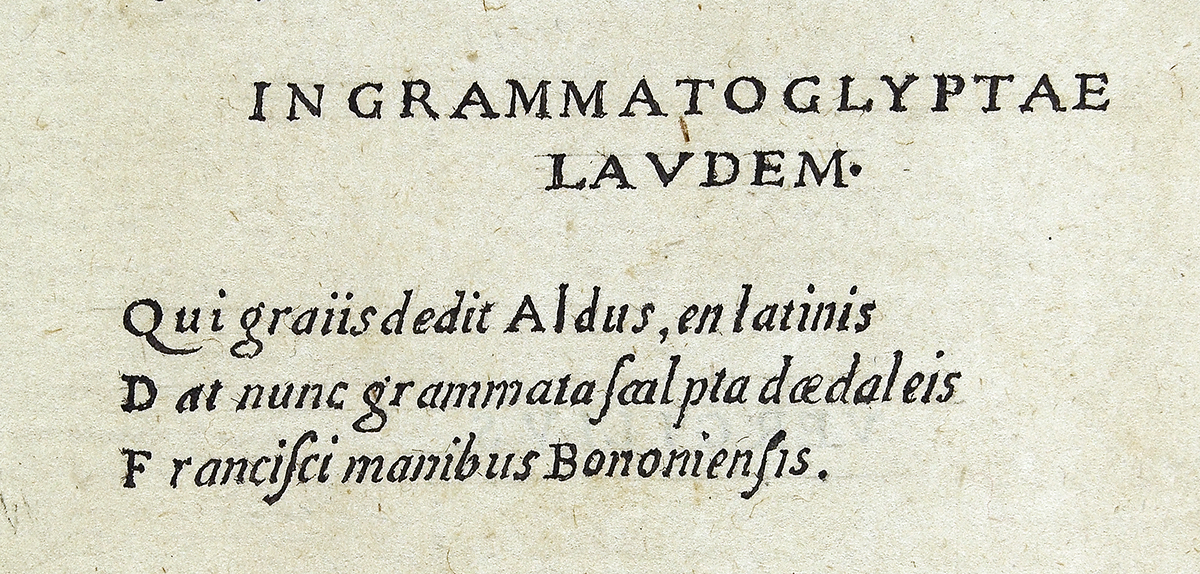 IN GRAMMATOGLYPTAE
LAVDEM.
Qui graiis dedit Aldus, en latinis
Dat nunc grammata ſcalpta dædaleis
Franciſci manibus Bononienſis.